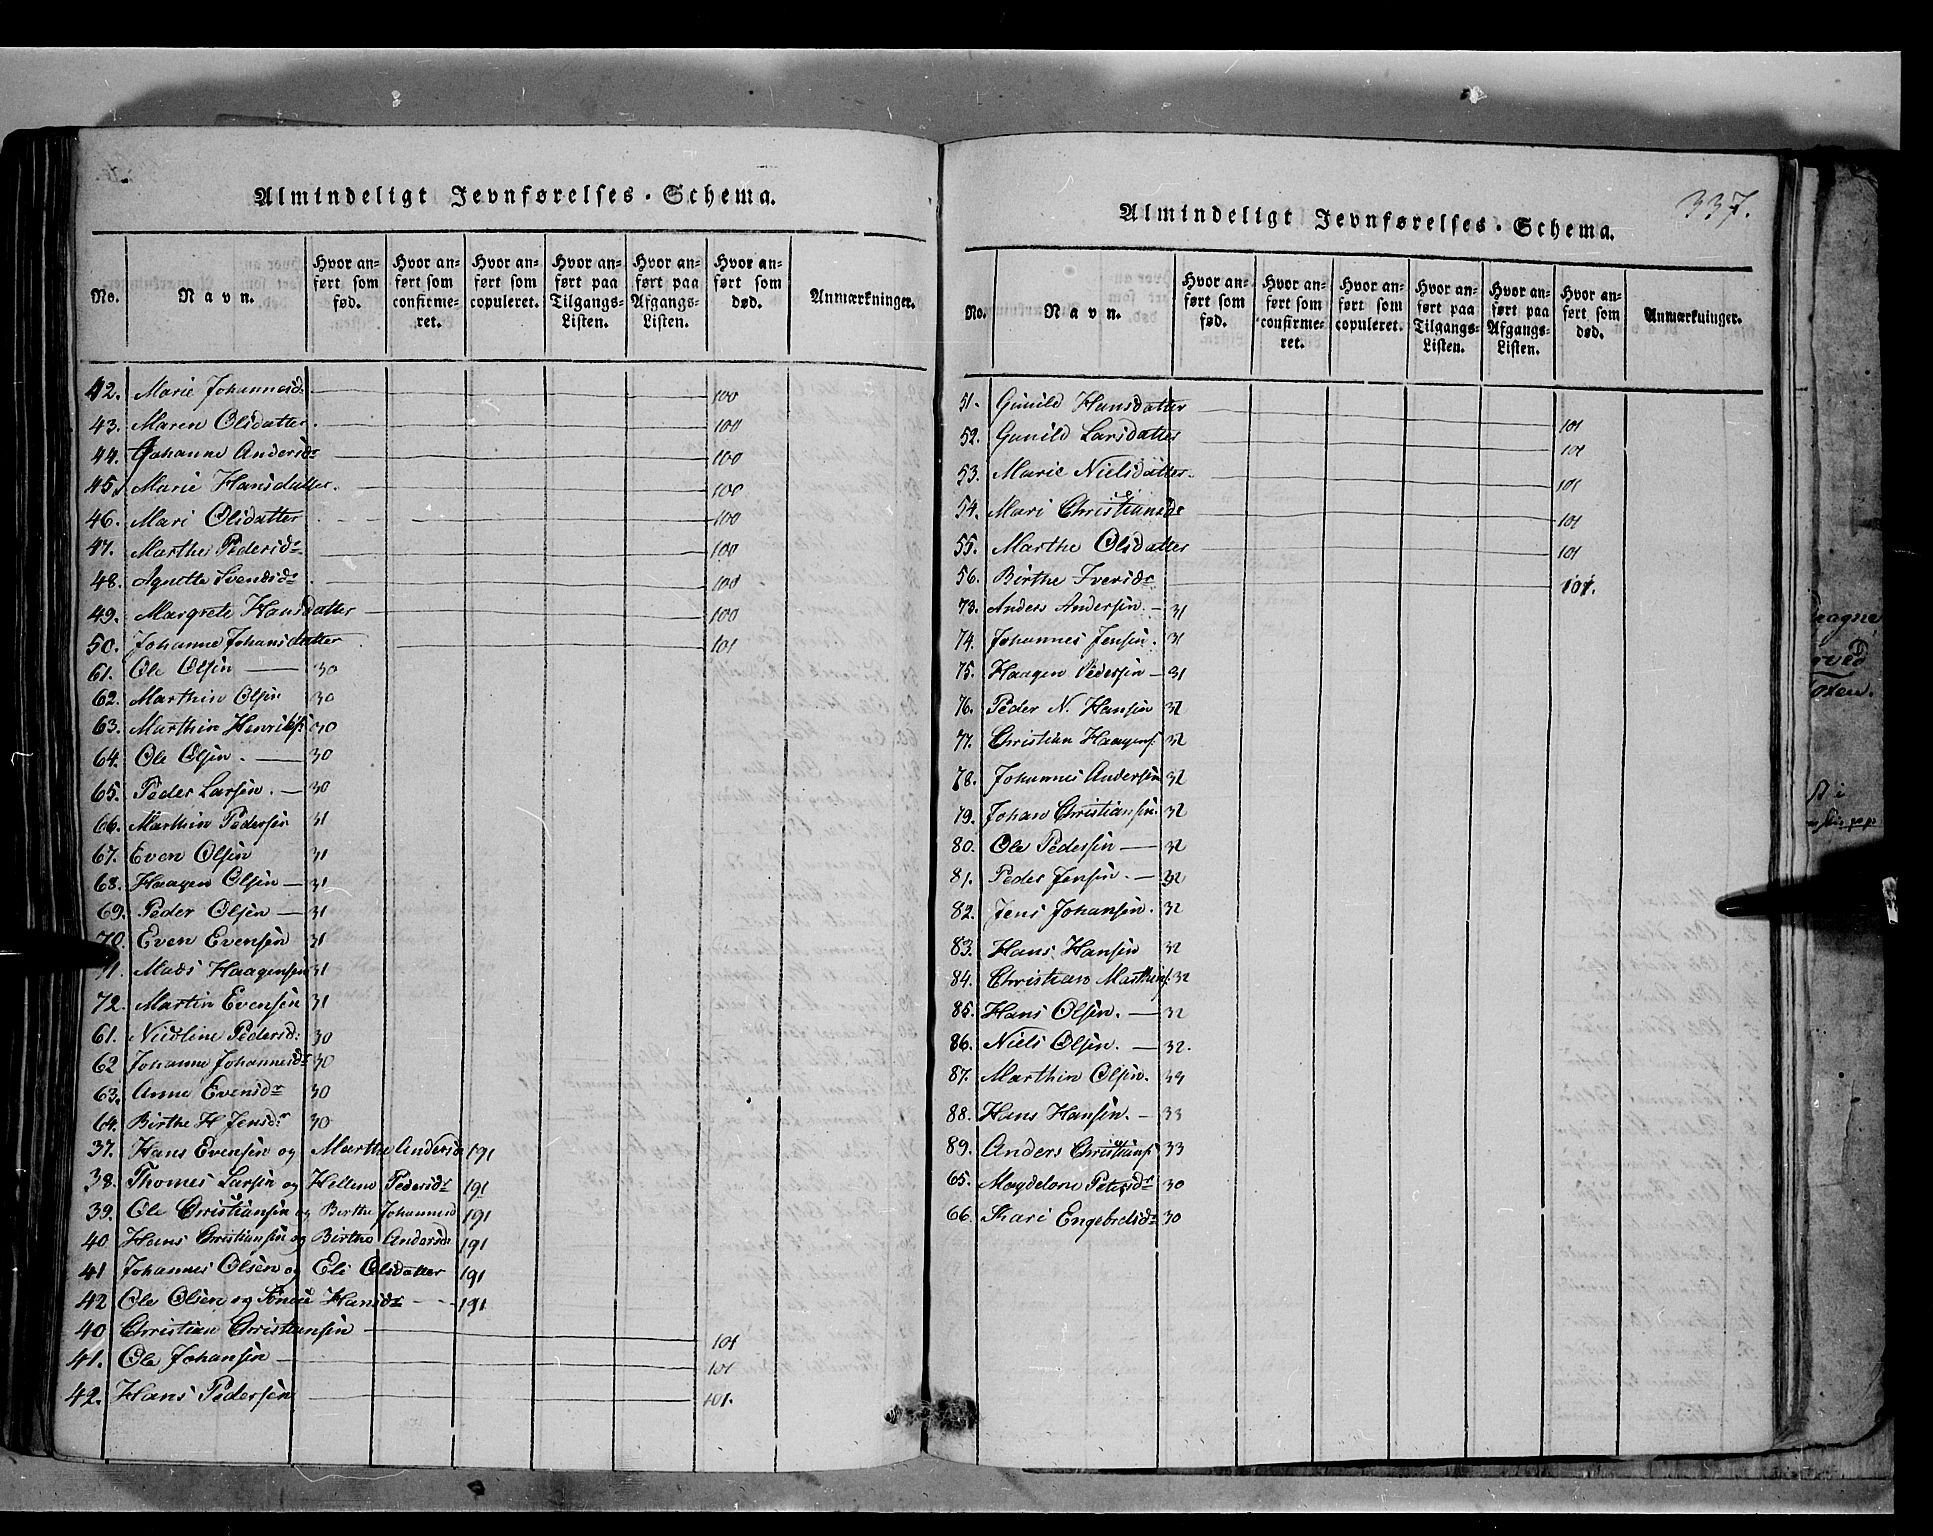 Almindeligt Jevnførelses-Schema.
No. Navn. Hvor anført som fød. Hvor anført som confirmeret. Hvor anført som copuleret. Hvor anført paa Tilgangs-Listen. Hvor anført paa Afgangs-Listen. Hvor anført som død. Anmærkninger.
42. Marie Johannesdr 100
43. Maren Olsdatter. 100
44. Johanne Andersdr 100
45. Marie Hansdatter. 100
46. Mari Olsdatter 100
47. Marthe Pedersdr 100
48. Agnette Svendsdr 100
49. Margrete Hansdatter 100
50. Johanne Johansdatter 101
61. Ole Olsen — 30
62. Marthin Olsen 30
63. Marthin Henriks. 30
64. Ole Olsen. — 30
65. Peder Larsen. — 30
66. Marthin Pedersen 31
67. Even Olsen 31
68. Haagen Olsen — 31
69. Peder Olsen — 31
70. Even Evensen 31
71. Mads Haagensen 31
72. Martin Evensen 31
61. Nicoline Pedersd: 30
62 Johanne Johannesdr 30
63. Anne Evensdr 30
64. Birthe H Jensdr 30
37. Hans Evensen og Marthe Andersd 191
38. Thomes Larsen og Hellene Pedersdr 191
39. Ole Christiansen og Birthe Johannesd 191
40 Hans Christiansen og Birthe Andersdr 191
41 Johannes Olsen og Eli Olsdatter 191
42 Ole Olsen og Hansdr 191
40 Christian Christiansen 101
41. Ole Johansen 101
42. Hans Pedersen 101.
337.
Almindeligt Jevnførelses-Schema.
No. Navn. Hvor anført som fød. Hvor anført som confirmeret. Hvor anført som copuleret. Hvor anført paa Tilgangs-Listen. Hvor anført paa Afgangs-Listen. Hvor anført som død. Anmærkninger.
51. Gunild Hansdatter 101
52. Gunild Larsdatter 101
53. Marie Nielsdatter. 101
54. Mari Christiansdr 101
55. Marthe Olsdatter 101
56. Birthe Iversdr 101.
73. Anders Andersen. — 31
74. Johannes Jensen. 31
75. Haagen Pedersen — 31
76. Peder N. Hansen 32
77. Christian Haagens. 32
78. Johannes Andersen 32
79. Johan Christiansen. 32
80. Ole Pedersen — 32
81. Peder Jensen. — 32
82. Jens Johansen. 32
83. Hans Hansen 32
84. Christian Marthins. 32
85. Hans Olsen. — 32
86. Niels Olsen. — 32.
87. Marthin Olsen. 33
88. Hans Hansen. — 33
89. Anders Christians. 33
65. Magdelone Petersdr 30
66. Kari Engebretsdr 30